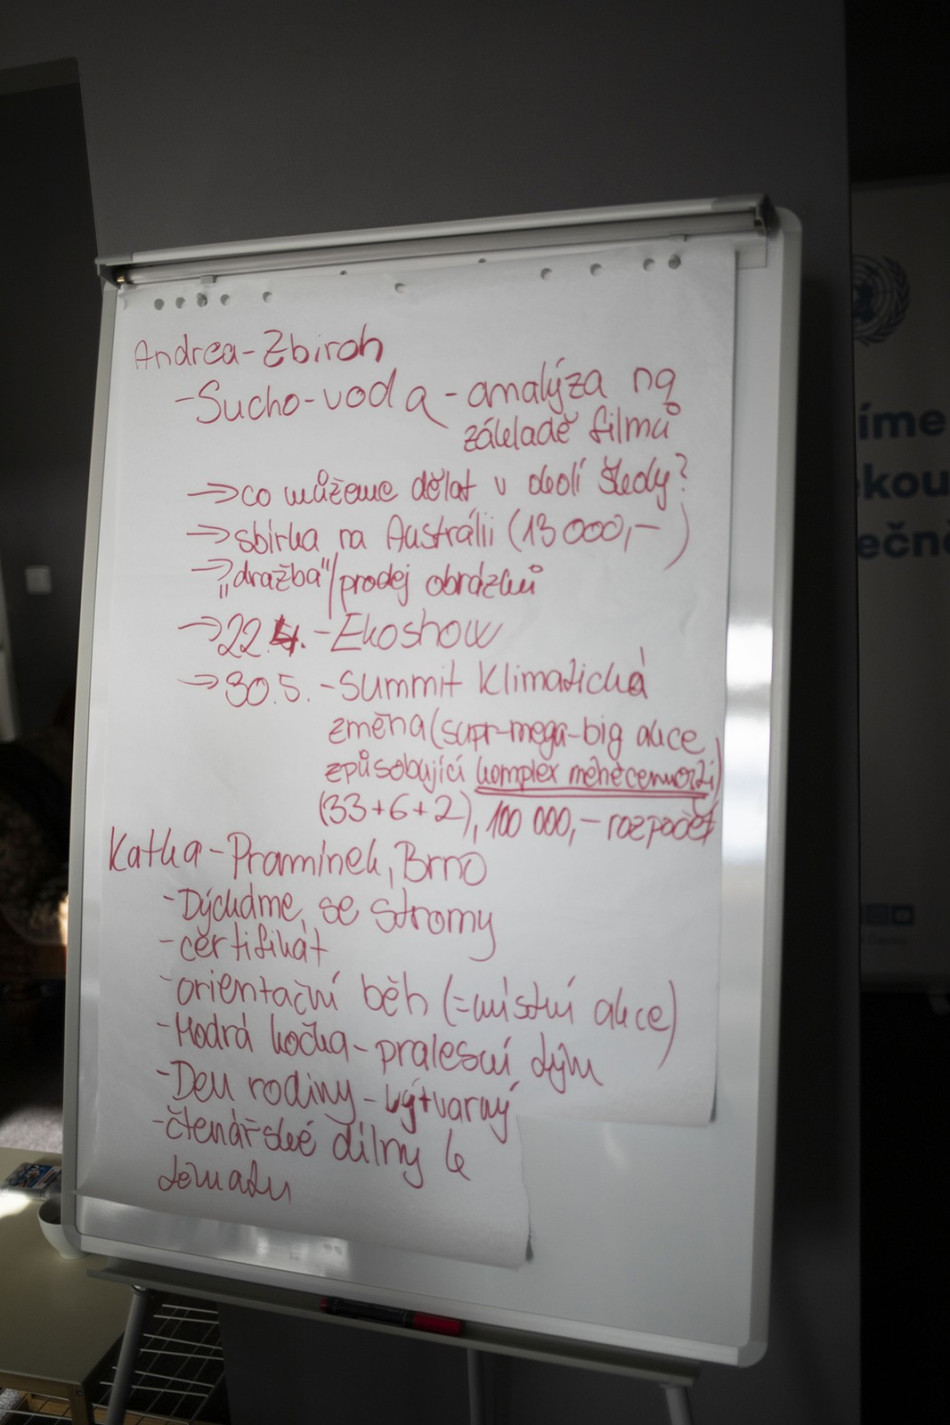 Andrea-Zbiroh
-Sucho-voda-analýza na
základě filmů
→co můžeme dělat v okolí školy?
→sbírka na Austrálii (13 000,-)
→„dražba"/prodej obrázků
→22.4.-Ekoshow
→30.5.-Summit Klimatická
změna (supr-mega-big akce
způsobující komplex méněcennosti)
(33+6+2), 100 000,- rozpočet
Katka-Pramínek, Brno
-Dýcháme se stromy
-certifikát
-orientační běh (=místní akce)
-Modrá kočka-pralesní dým
-Den rodiny-výtvarný
-čtenářské dílny k
tématu
íme
kou
ečno